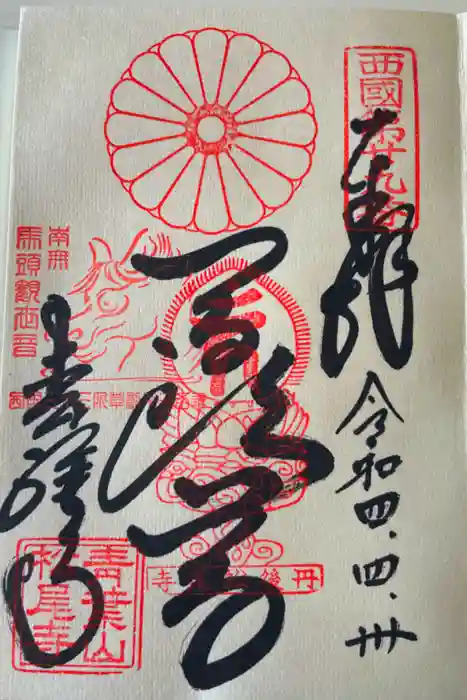 西國第廿九番
奉拝
令和四.四.卅
馬頭尊
南無
馬頭觀世音
青葉山
松尾寺